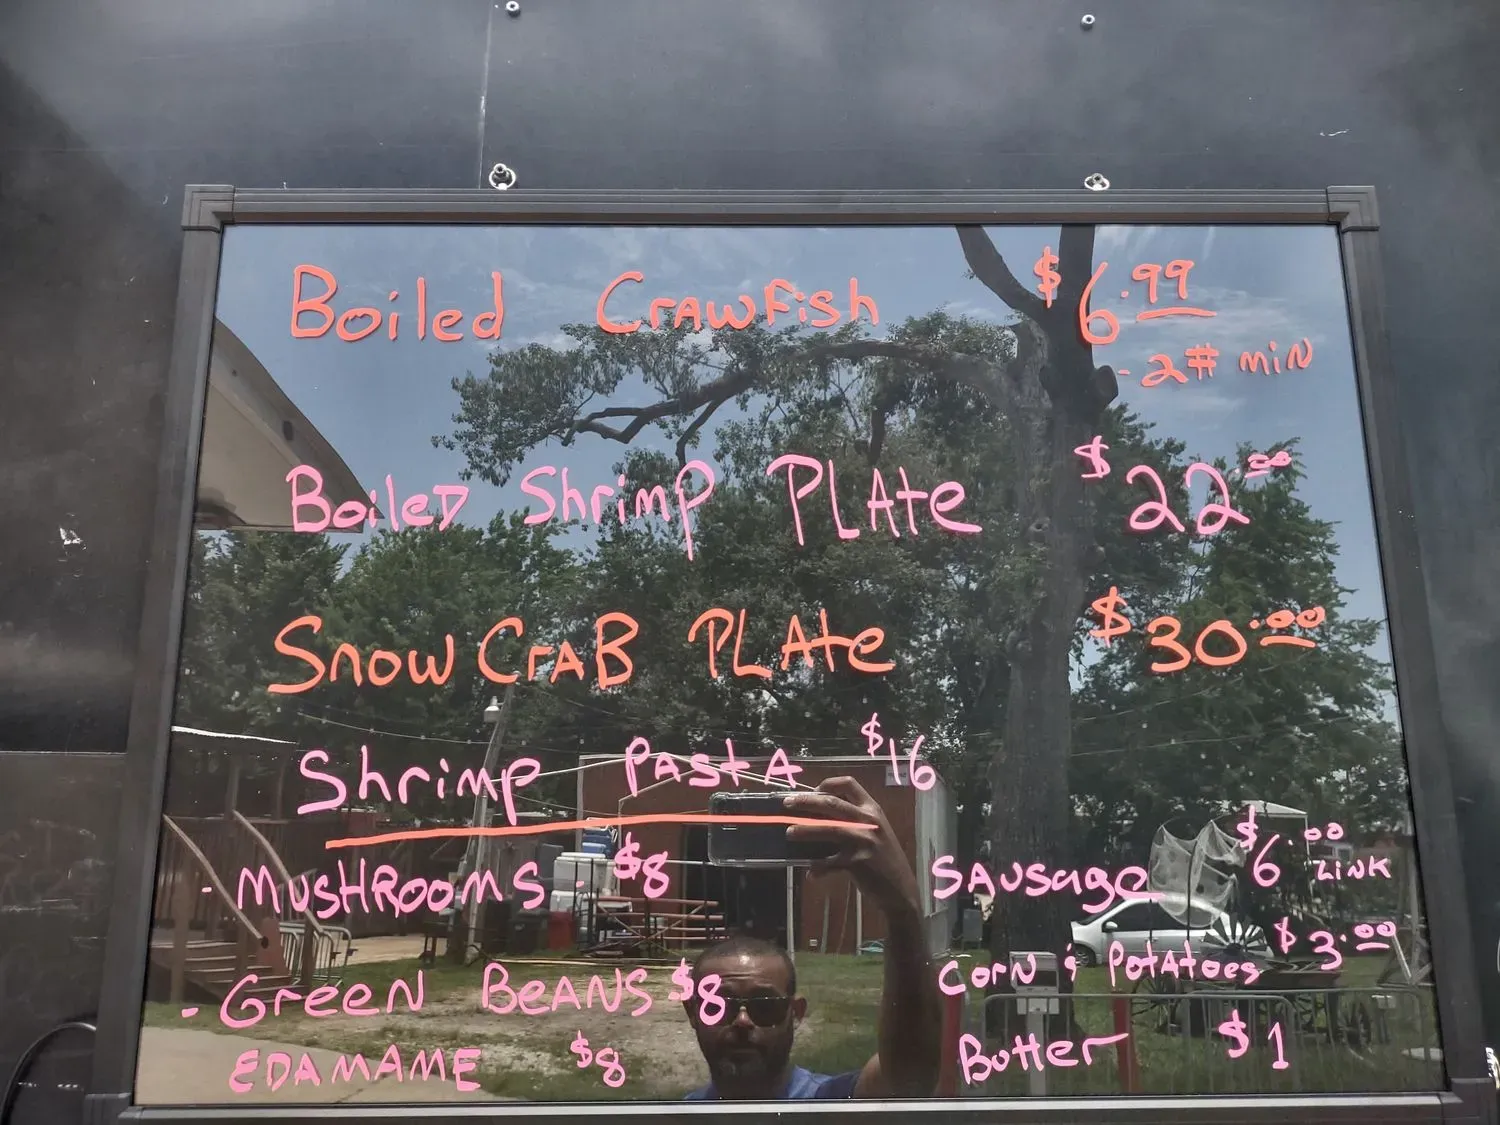 Boiled Crawfish $6.99
- 2# min
Boiled Shrimp Plate $22.00
Snow Crab Plate $30.00
Shrimp Pasta $16
- MUSHROOMS - $8
- Green Beans $8
EDAMAME $8
Sausage $6.00 Link
Corn & Potatoes $3.00
Butter $1